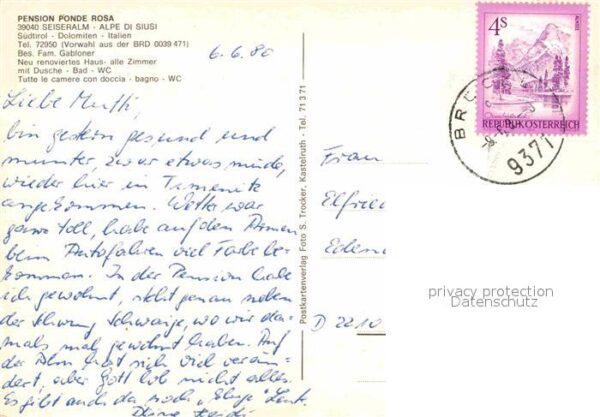 PENSION PONDE ROSA
39040 SEISERALM - ALPE DI SIUSI
Südtirol - Dolomiten - Italien
Tel. 72950 (Vorwahl aus der BRD 0039 471)
Bes. Fam. Gabloner
Neu renoviertes Haus- alle Zimmer
mit Dusche - Bad - WC
Tutte le camere con doccia - bagno - WC
6.6.80
Liebe Mutti,
bin gestern gesund und
munter, zwar etwas müde,
wieder hier in
angekommen. Wetter war
ganz toll, habe auf den Armen
beim Autofahren viel Farbe be-
kommen. In der Pension habe
ich gewohnt, steht genau neben
der Schwaige, wo wir da-
mals mal gewohnt haben. Auf
der Alm hat sich viel verän-
dert, aber Gott lob nicht alles.
Es gibt auch da noch Leut.
Deine Heidi
Postkartenverlag Foto S. Trocker, Kastelruth - Tel. 71371
4s
REPUBLIK ÖSTERREICH
9371
Frau
Elfried
Edem
D 2210
privacy protection
Datenschutz